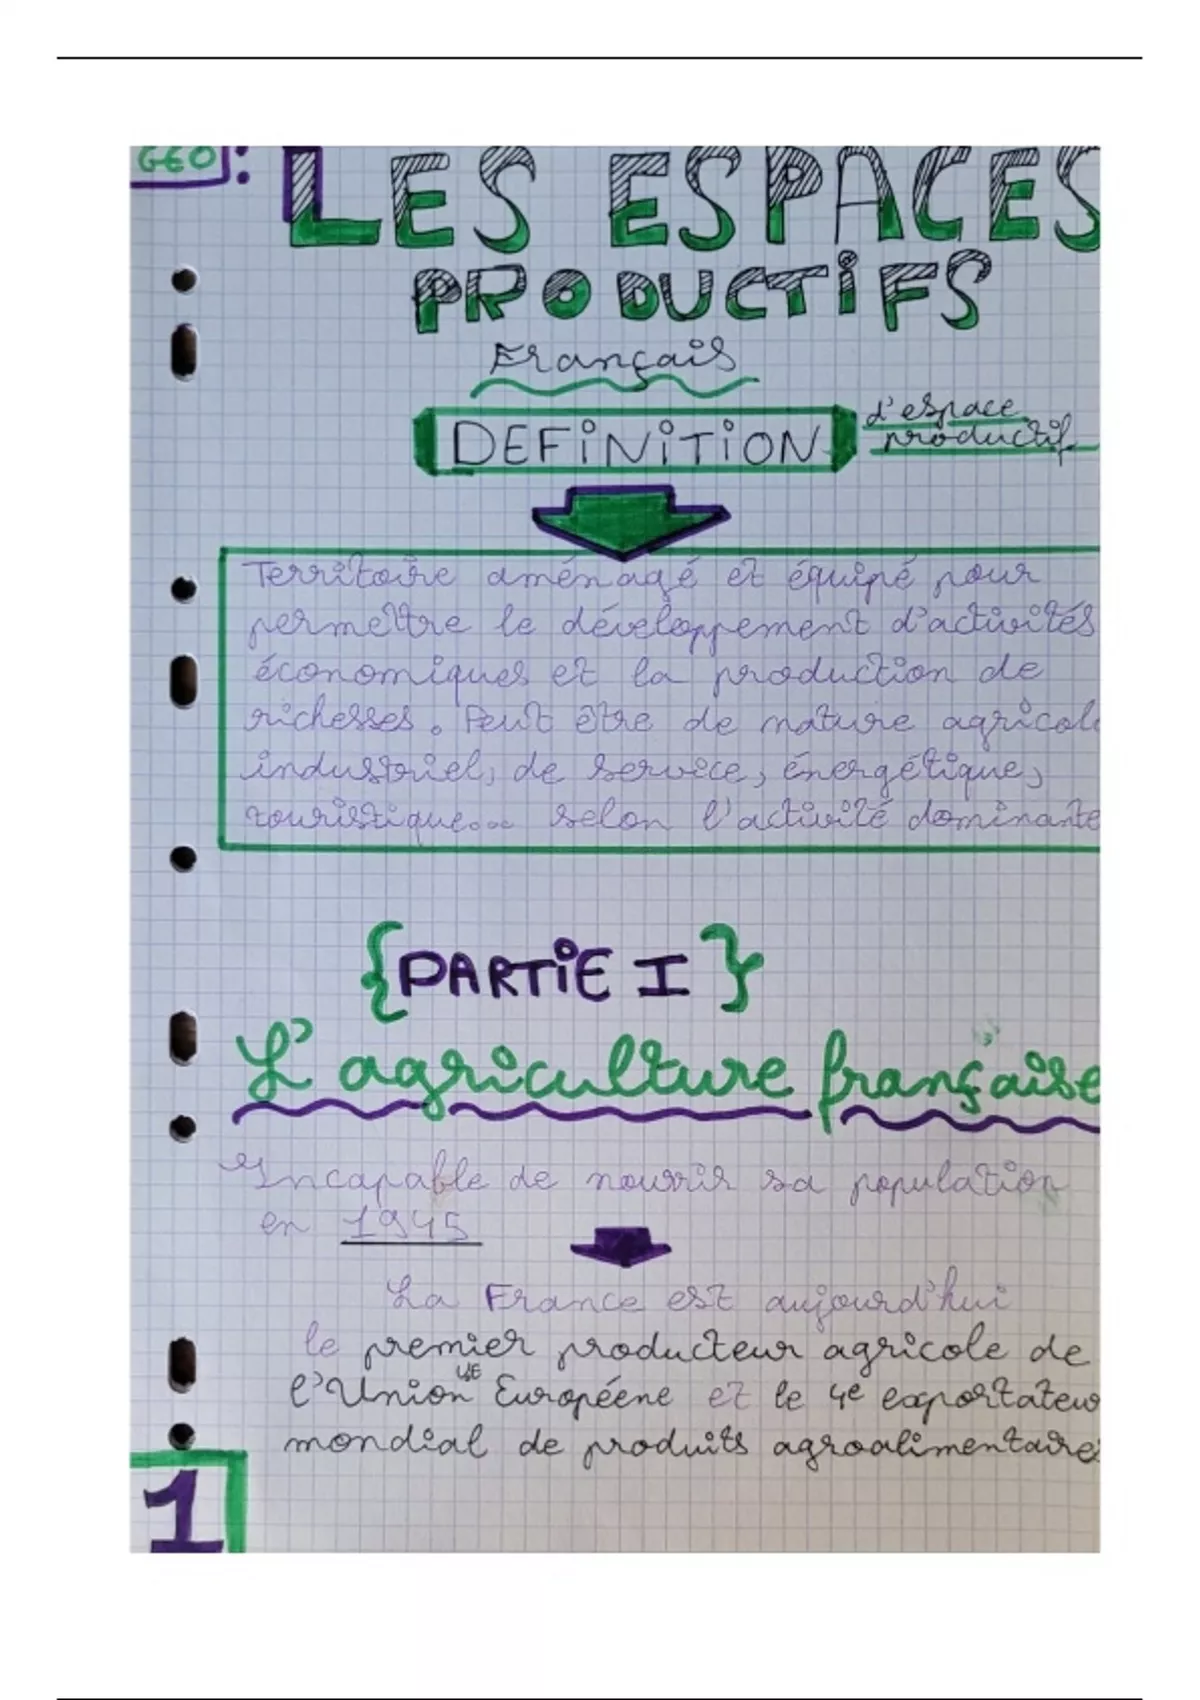 GEO :
LES ESPACES
PRODUCTiFS
Français
DEFiNiTiON d'espace
productif
Territoire aménagé et équipé pour
permettre le développement d'activités
économiques et la production de
richesses. Peut être de nature agricole
industriel, de service, énergétique,
touristique... selon l'activité dominante
{PARTiE I}
L'agriculture française
Incapable de nourrir sa population
en 1945
La France est aujourd'hui
le premier producteur agricole de
l'Union UE Européene et le 4e exportateur
mondial de produits agroalimentaires
1